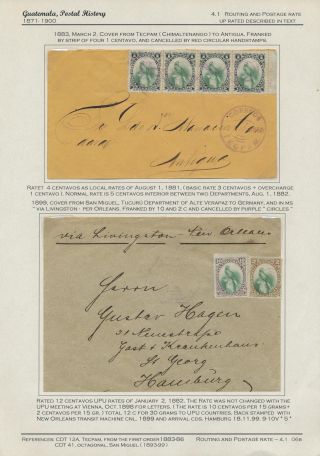 Guatemala, Postal History
1871-1900
4.1 Routing and Postage rate
up rated described in text
1883, March 2. Cover from Tecpam (Chimaltenango) to Antigua, Franked
by strip of four 1 centavo, and cancelled by red circular handstamps
Antigua
Rate? 4 centavos as local rates of August 1, 1881, (basic rate 3 centavos + overcharge
1 centavo). Normal rate is 5 centavos interior between two departments, Aug. 1, 1882.
1899, cover from San Miguel, Tucurú Department of Alte Verapaz to Germany, and in ms
"via Livingston - per Orleans. Franked by 10 and 2 c and cancelled by purple "circles"
via Livingston New Orleans
Herrn
Gustav Hagen
Gast & Krankenhaus
St Georg
Hamburg
Rated 12 centavos UPU rates of January 2, 1882. The Rate was not changed with the
UPU meeting at Vienna, Oct. 1898 for letters. (The rate is 10 centavos per 15 grams +
2 centavos per 15 gr.) total 12 c for 30 grams to UPU countries. Back stamped with
New Orleans transit machine cnl. 1899 and arrival cds. Hamburg 18.11.99. 9-10V "5"
References: CDT 12A, Tecpam, from the first order 1883-86
CDT 41, octagonal, San Miguel (1893-99)
Routing and Postage rate – 4.1 068